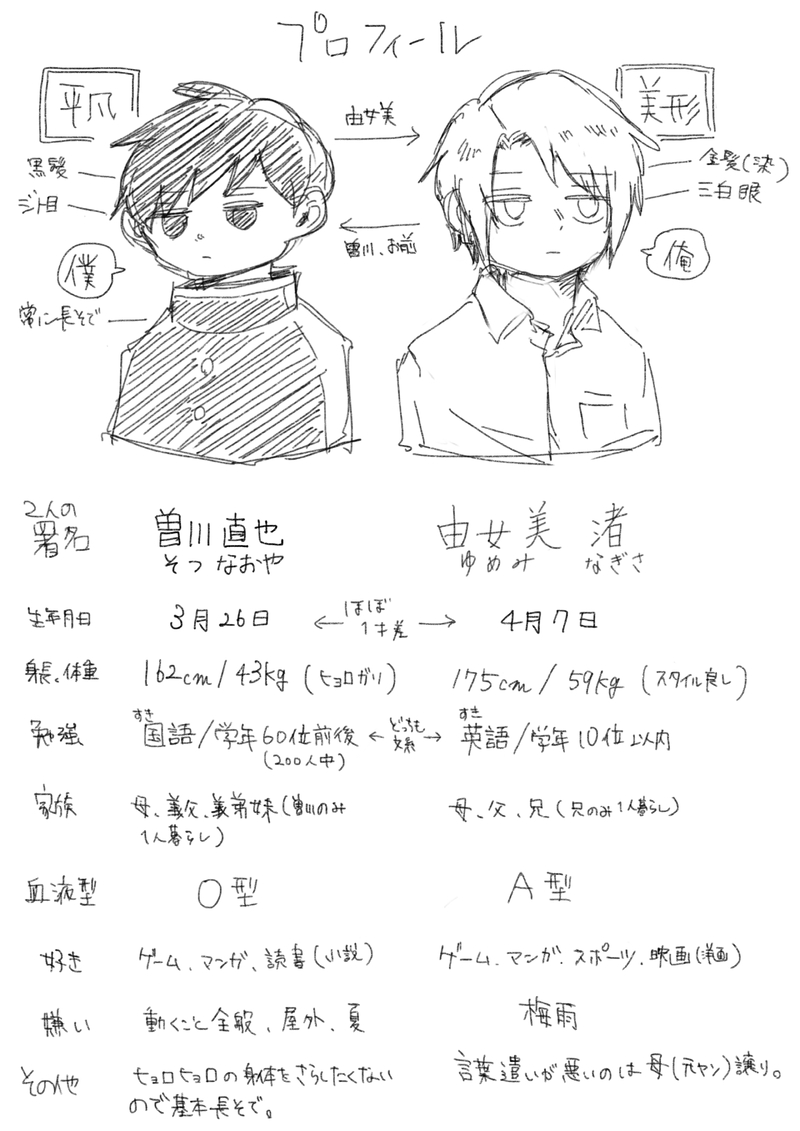 プロフィール
平凡
美形
由女美
黒髪
ジト目
金髪(染)
三白眼
曽川、お前
僕
俺
常に長そで
2人の
署名
曽川直也
由女美 渚
そつ なおや
ゆめみ なぎさ
生年月日
3月26日
ほぼ
1才差
4月7日
身長、体重
162cm/43kg(ヒョロガリ)
175cm/59kg(スタイル良し)
勉強
すき
国語/学年60位前後
(200人中)
どっちも
文系
すき
英語/学年10位以内
家族
母、義父、義弟妹(曽川のみ
1人暮らし)
母、父、兄(兄のみ1人暮らし)
血液型
O型
A型
好き
ゲーム、マンガ、読書(小説)
ゲーム、マンガ、スポーツ、映画(洋画)
嫌い
動くこと全般、屋外、夏
梅雨
その他
ヒョロヒョロの身体をさらしたくない
ので基本長そで。
言葉遣いが悪いのは母(元ヤン)譲り。